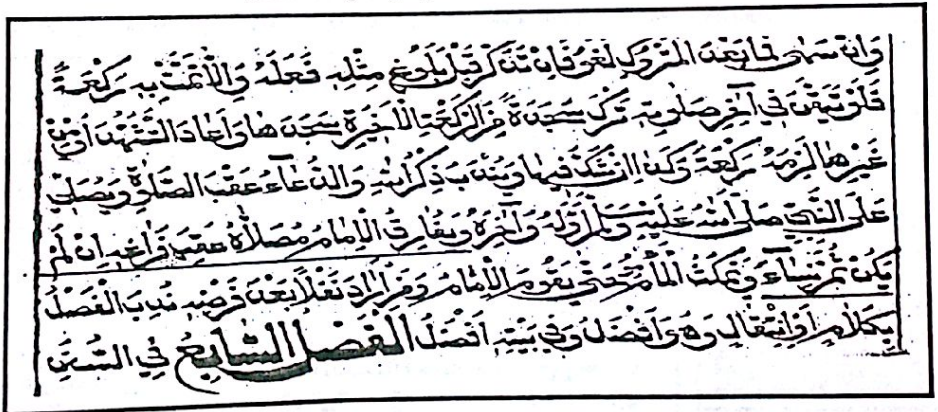 وَاِنْ سَهٰى فَمَا بَعْدَ الْمَتْرُوكِ لَغْوٌ فَاِنْ تَذَكَّرَ قَبْلَ بُلُوغِ مِثْلِهِ فَعَلَهُ وَاِلَّا تَمَّتْ بِهِ رَكْعَةٌ
فَلَوْ تَيَقَّنَ فِي آخِرِ صَلٰوتِهِ تَرْكَ سَجْدَةٍ مِّنَ الرَّكْعَةِ الْاَخِيرَةِ سَجَدَهَا وَاَعَادَ التَّشَهُّدَ اَوْ مِنْ
غَيْرِهَا لَزِمَهُ رَكْعَةٌ وَكَذَا اِنْ شَكَّ فِيهَا وَيُنْدَبُ ذِكْرُ اللهِ وَالدُّعَاءُ عَقْبَ الصَّلٰوةِ وَيُصَلِّي
عَلَى النَّبِيِّ صَلَّى اللهُ عَلَيْهِ وَسَلَّمَ اَوَّلَهُ وَآخِرَهُ وَيُفَارِقُ الْاِمَامُ مُصَلَّاهُ عَقِبَ فَرَاغِهِ اِنْ لَمْ
يَكُنْ ثَمَّ نِسَاءٌ وَيَمْكُثُ الْمَأْمُومُ حَتّٰى يَقُومَ الْاِمَامُ وَمَنْ اَرَادَ نَفْلًا بَعْدَ فَرْضِهِ نُدِبَ الْفَصْلُ
بِكَلَامٍ اَوِ انْتِقَالٍ وَهُوَ اَفْضَلُ وَفِي بَيْتِهِ اَفْضَلُ الْفَصْلُ السَّابِعُ فِي السُّنَنِ